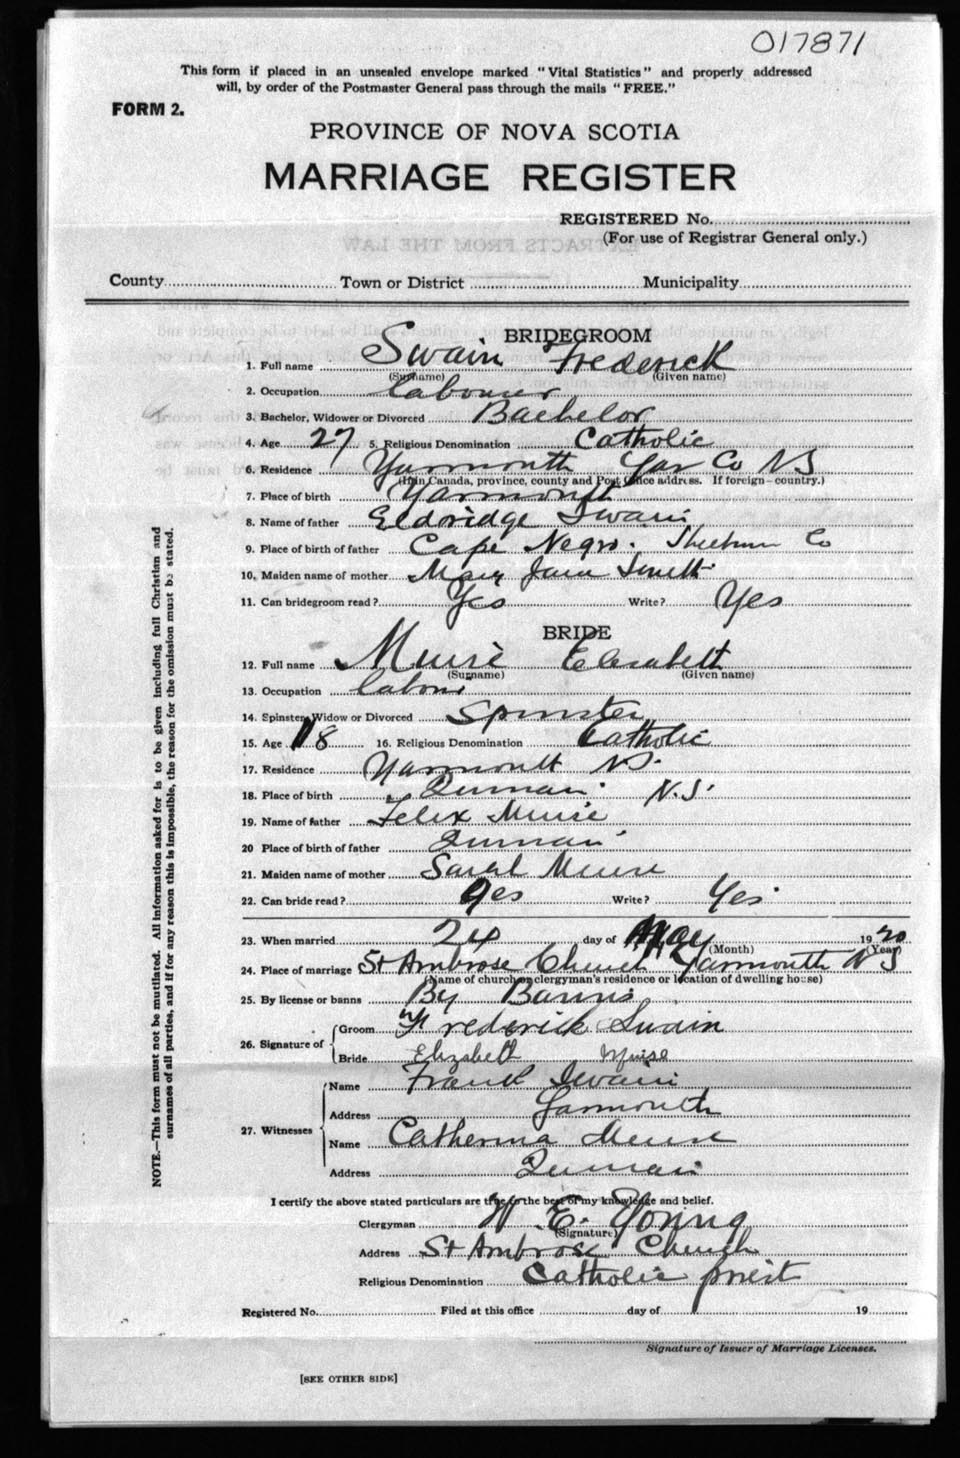 017871
This form if placed in an unsealed envelope marked "Vital Statistics" and properly addressed
will, by order of the Postmaster General pass through the mails "FREE."
FORM 2.
PROVINCE OF NOVA SCOTIA
MARRIAGE REGISTER
REGISTERED No.
(For use of Registrar General only.)
County Town or District Municipality
BRIDEGROOM
1. Full name Swain Frederick
(Surname) (Given name)
2. Occupation labourer
3. Bachelor, Widower or Divorced Bachelor
4. Age 27 5. Religious Denomination Catholic
6. Residence Yarmouth Yar Co NS
(If in Canada, province, county and Post Office address. If foreign—country.)
7. Place of birth Yarmouth
8. Name of father Eldoridge Swain
9. Place of birth of father Cape Negro. Co
10. Maiden name of mother Mary Jane
11. Can bridegroom read? Yes Write? Yes
BRIDE
12. Full name Muise Elesabeth
(Surname) (Given name)
13. Occupation labour
14. Spinster, Widow or Divorced Spinster
15. Age 18 16. Religious Denomination Catholic
17. Residence Yarmouth NS.
18. Place of birth N.S.
19. Name of father Felix Muise
20 Place of birth of father
21. Maiden name of mother Sarah Muise
22. Can bride read? Yes Write? Yes
23. When married 24 day of May 1920
(Month) (Year)
24. Place of marriage St Ambrose Church Yarmouth NS
(Name of church or clergyman's residence or location of dwelling house)
25. By license or banns By Banns
26. Signature of Groom Frederick Swain
Bride Elizabeth Muise
27. Witnesses Name Frank Swain
Address Yarmouth
Name Catherina Muise
Address
I certify the above stated particulars are true to the best of my knowledge and belief.
Clergyman W. E. Young
(Signature)
Address St Ambrose Church
Religious Denomination Catholic priest
Registered No. Filed at this office day of 19
Signature of Issuer of Marriage Licenses.
[SEE OTHER SIDE]
NOTE.—This form must not be mutilated. All information asked for is to be given including full Christian and
surnames of all parties, and if for any reason this is impossible, the reason for the omission must be stated.